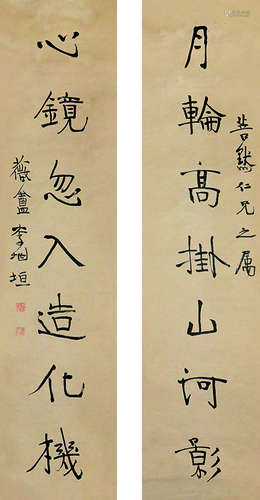 月輪高掛山河影
普然仁兄之屬
心鏡忽入造化機
薇盦李桓